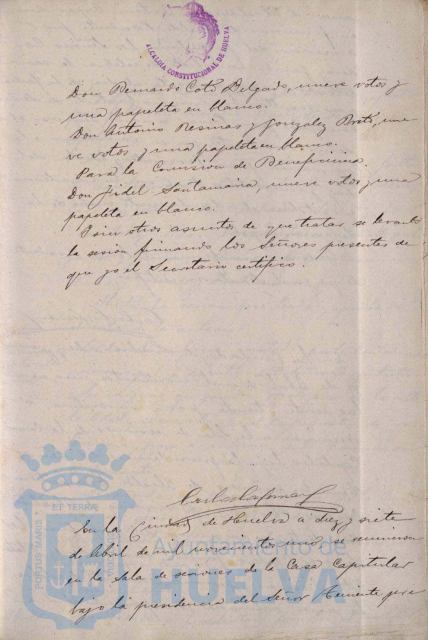 ALCALDIA CONSTITUCIONAL DE HUELVA
Don Bernardo Coto Delgado, nueve votos y
una papeleta en blanco.
Don Antonio Resinas y Gonzalez nue-
ve votos y una papeleta en blanco.
Para la Comisión de Beneficencia.
Don Fidel Santamaria, nueve votos y una
papeleta en blanco.
Y sin otros asuntos de que tratar se levantó
la sesión firmando los Señores presentes de
que yo el Secretario certifico.
En la Ciudad de Huelva a diez y siete
de Abril de mil novecientos uno, se reunieron
en la Sala de sesiones de la Casa Capitular
bajo la presidencia del Señor Teniente
PORTUS MARIS ET TERRÆ
Ayuntamiento de
HUELVA